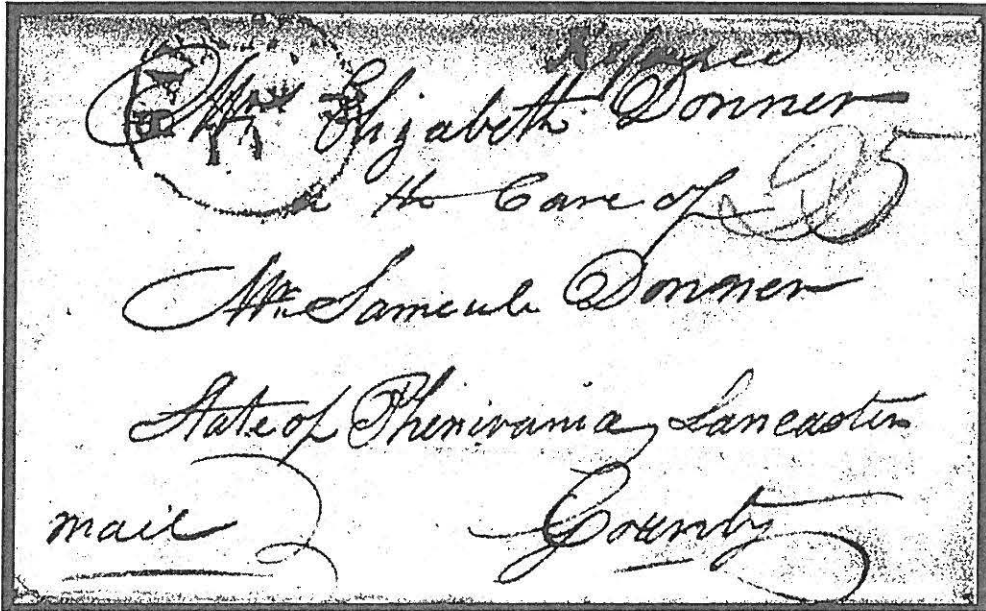 Elizabeth Donner
to Care of 25
Mr. Samieule Donner
State of Phenivania, Lancaster
mail County